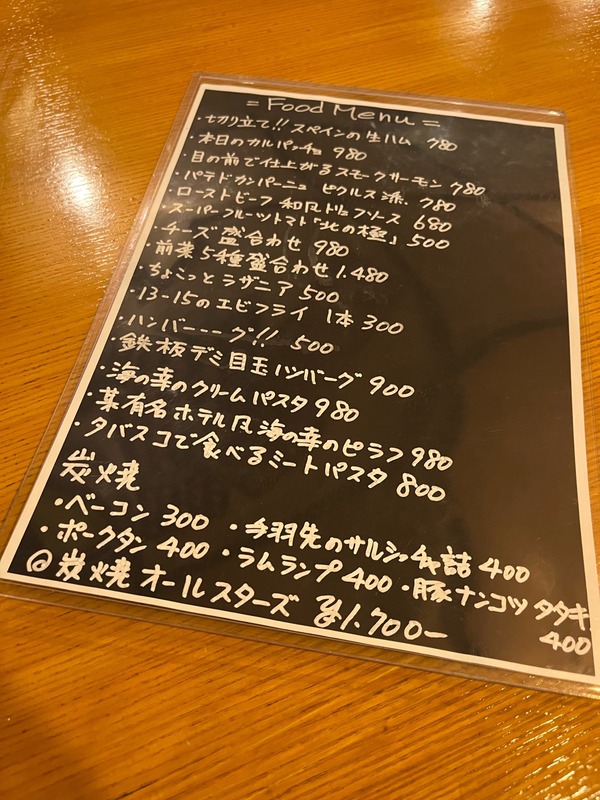 = Food Menu =
・切り立て!! スペインの生ハム 780
・本日のカルパッチョ 980
・目の前で仕上がるスモークサーモン 780
・パテドカンパーニュ ピクルス添 780
・ローストビーフ 和風トリュフソース 680
・スーパーフルーツトマト「北の極」 500
・チーズ盛合わせ 980
・前菜5種盛合わせ 1.480
・ちょこっとラザニア 500
・13-15のエビフライ 1本 300
・ハンバーーーグ!! 500
・鉄板デミ目玉ハンバーグ 900
・海の幸のクリームパスタ 980
・某有名ホテル風 海の幸のピラフ 980
・タバスコで食べるミートパスタ 800
炭火焼
・ベーコン 300 ・手羽先のサルシッチャ詰 400
・ポークタン 400 ・ラムランプ 400 ・豚ナンコツ タタキ
400
◎炭火焼オールスターズ ¥1.700-